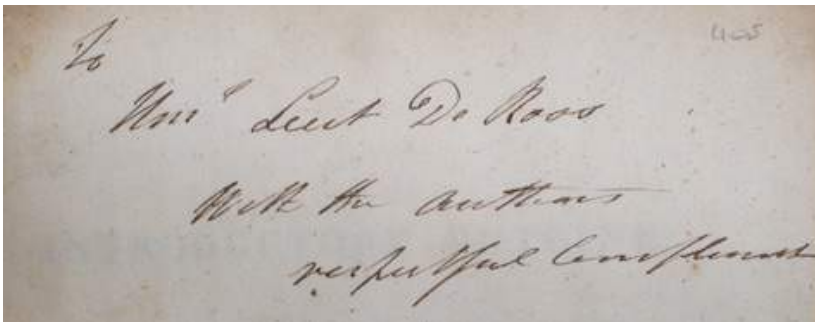 To
Honble Lieut De Roos
With the authors
respectful Compliments